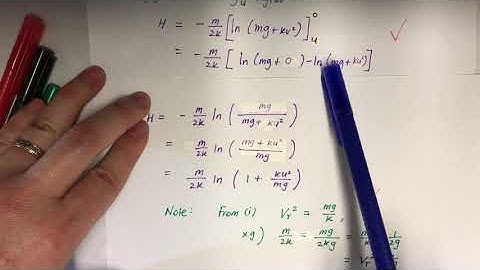 H = - m/2k [ ln (mg + ku²) ]₍u₎⁰
= - m/2k [ ln (mg + 0 ) - ln (mg + ku²) ]
H = - m/2k ln ( mg / mg + ku² )
= m/2k ln ( mg + ku² / mg )
= m/2k ln ( 1 + ku²/mg )
Note: From (i) V_T² = mg/k ,
×g) m/2k = mg/2kg = 1/2g
= V_T²